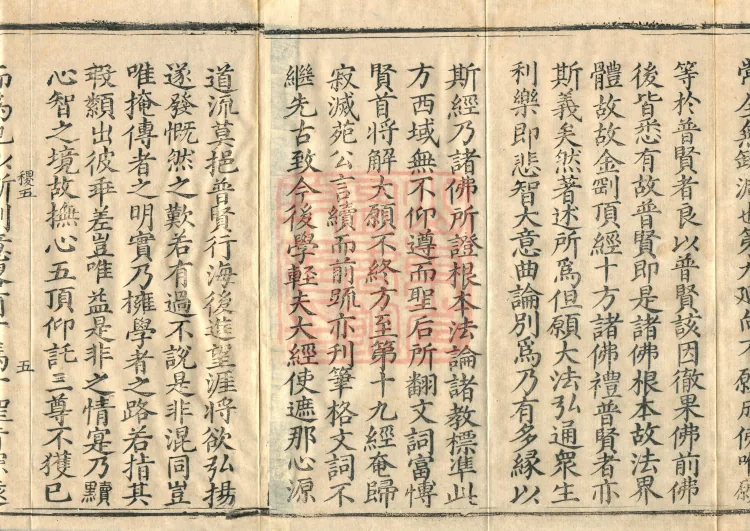 等於普賢者良以普賢該因徹果佛前佛
後皆悉有故普賢即是諸佛根本故法界
體故故金剛頂經十方諸佛禮普賢者亦
斯義矣然著述所爲但願大法弘通衆生
利樂即悲智大意曲論別爲乃有多緣以
斯經乃諸佛所證根本法論諸教標準此
方西域無不仰遵而聖后所翻文詞富博
賢首將解大願不終方至第十九經奄歸
寂滅苑公言續而前疏亦刊筆格文詞不
繼先古致令後學輕夫大經使遮那心源
道流莫挹普賢行海後進望涯將欲弘揚
遂發慨然之歎若有過不說是非混同豈
唯掩傳者之明實乃擁學者之路若指其
瑕纇出彼乖差豈唯益是非之情寔乃黷
心智之境故撫心五頂仰託三尊不獲已
稷五
五